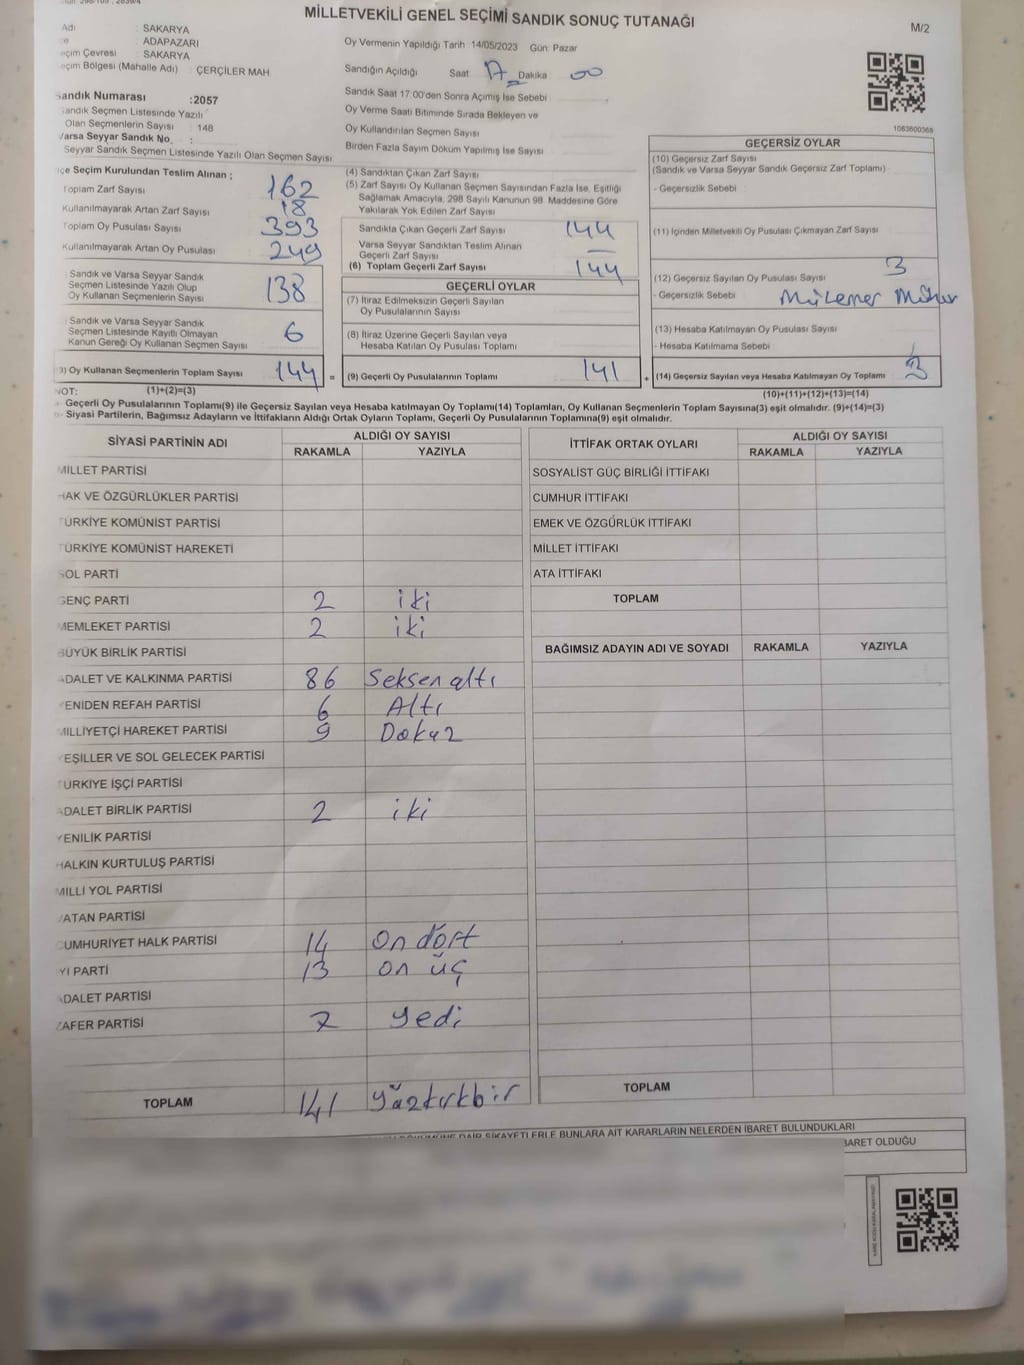 MİLLETVEKİLİ GENEL SEÇİMİ SANDIK SONUÇ TUTANAĞI
M/2
Adı : SAKARYA
ADAPAZARI
eçim Çevresi : SAKARYA
eçim Bölgesi (Mahalle Adı) : ÇERÇİLER MAH
Sandık Numarası :2057
Sandık Seçmen Listesinde Yazılı
Olan Seçmenlerin Sayısı : 148
Varsa Seyyar Sandık No :
Seyyar Sandık Seçmen Listesinde Yazılı Olan Seçmen Sayısı
Oy Vermenin Yapıldığı Tarih 14/05/2023 Gün: Pazar
Sandığın Açıldığı Saat 17 Dakika 00
Sandık Saat 17:00'den Sonra Açılmış İse Sebebi
Oy Verme Saati Bitiminde Sırada Bekleyen ve
Oy Kullandırılan Seçmen Sayısı
Birden Fazla Sayım Döküm Yapılmış İse Sayısı
1083600368
lçe Seçim Kurulundan Teslim Alınan ;
Toplam Zarf Sayısı 162
Kullanılmayarak Artan Zarf Sayısı 18
Toplam Oy Pusulası Sayısı 393
Kullanılmayarak Artan Oy Pusulası 249
Sandık ve Varsa Seyyar Sandık
Seçmen Listesinde Yazılı Olup
Oy Kullanan Seçmenlerin Sayısı 138
Sandık ve Varsa Seyyar Sandık
Seçmen Listesinde Kayıtlı Olmayan
Kanun Gereği Oy Kullanan Seçmen Sayısı 6
3) Oy Kullanan Seçmenlerin Toplam Sayısı 144 =
(4) Sandıktan Çıkan Zarf Sayısı
(5) Zarf Sayısı Oy Kullanan Seçmen Sayısından Fazla İse, Eşitliği
Sağlamak Amacıyla, 298 Sayılı Kanunun 98. Maddesine Göre
Yakılarak Yok Edilen Zarf Sayısı
Sandıkta Çıkan Geçerli Zarf Sayısı 144
Varsa Seyyar Sandıktan Teslim Alınan
Geçerli Zarf Sayısı —
(6) Toplam Geçerli Zarf Sayısı 144
GEÇERLİ OYLAR
(7) İtiraz Edilmeksizin Geçerli Sayılan
Oy Pusulalarının Sayısı
(8) İtiraz Üzerine Geçerli Sayılan veya
Hesaba Katılan Oy Pusulası Toplamı
(9) Geçerli Oy Pusulalarının Toplamı 141 +
GEÇERSİZ OYLAR
(10) Geçersiz Zarf Sayısı
(Sandık ve Varsa Seyyar Sandık Geçersiz Zarf Toplamı)
- Geçersizlik Sebebi
(11) İçinden Milletvekili Oy Pusulası Çıkmayan Zarf Sayısı
(12) Geçersiz Sayılan Oy Pusulası Sayısı 3
- Geçersizlik Sebebi
(13) Hesaba Katılmayan Oy Pusulası Sayısı
- Hesaba Katılmama Sebebi
(14) Geçersiz Sayılan veya Hesaba Katılmayan Oy Toplamı 3
NOT: (1)+(2)=(3)
(10)+(11)+(12)+(13)=(14)
- Geçerli Oy Pusulalarının Toplamı(9) ile Geçersiz Sayılan veya Hesaba katılmayan Oy Toplamı(14) Toplamları, Oy Kullanan Seçmenlerin Toplam Sayısına(3) eşit olmalıdır. (9)+(14)=(3)
- Siyasi Partilerin, Bağımsız Adayların ve İttifakların Aldığı Ortak Oyların Toplamı, Geçerli Oy Pusulalarının Toplamına(9) eşit olmalıdır.
SİYASİ PARTİNİN ADI ALDIĞI OY SAYISI
RAKAMLA YAZIYLA
MİLLET PARTİSİ
HAK VE ÖZGÜRLÜKLER PARTİSİ
TÜRKİYE KOMÜNİST PARTİSİ
TÜRKİYE KOMÜNİST HAREKETİ
SOL PARTİ
GENÇ PARTİ 2 iki
MEMLEKET PARTİSİ 2 iki
BÜYÜK BİRLİK PARTİSİ
ADALET VE KALKINMA PARTİSİ 86 Seksen altı
YENİDEN REFAH PARTİSİ 6 Altı
MİLLİYETÇİ HAREKET PARTİSİ 9 Dokuz
YEŞİLLER VE SOL GELECEK PARTİSİ
TÜRKİYE İŞÇİ PARTİSİ
ADALET BİRLİK PARTİSİ 2 iki
YENİLİK PARTİSİ
HALKIN KURTULUŞ PARTİSİ
MİLLİ YOL PARTİSİ
VATAN PARTİSİ
CUMHURİYET HALK PARTİSİ 14 On dört
İYİ PARTİ 13 on üç
ADALET PARTİSİ
ZAFER PARTİSİ 7 yedi
TOPLAM 141 yüzkırkbir
İTTİFAK ORTAK OYLARI ALDIĞI OY SAYISI
RAKAMLA YAZIYLA
SOSYALİST GÜÇ BİRLİĞİ İTTİFAKI
CUMHUR İTTİFAKI
EMEK VE ÖZGÜRLÜK İTTİFAKI
MİLLET İTTİFAKI
ATA İTTİFAKI
TOPLAM
BAĞIMSIZ ADAYIN ADI VE SOYADI RAKAMLA YAZIYLA
TOPLAM
DAİR ŞİKAYETLERLE BUNLARA AİT KARARLARIN NELERDEN İBARET BULUNDUKLARI
BARET OLDUĞU